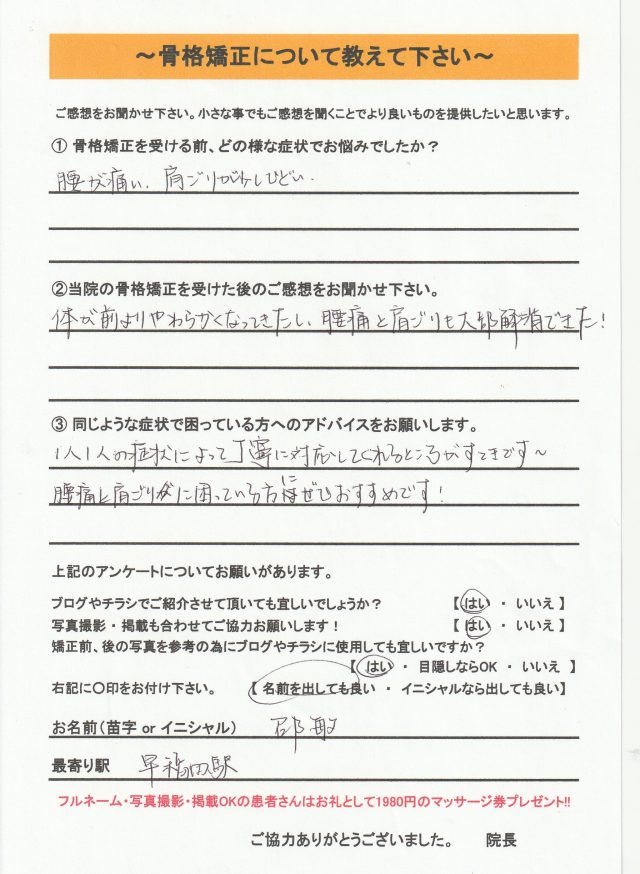 ～骨格矯正について教えて下さい～
ご感想をお聞かせ下さい。小さな事でもご感想を聞くことでより良いものを提供したいと思います。
① 骨格矯正を受ける前、どの様な症状でお悩みでしたか？
腰が痛い、肩ごりが少しひどい.
②当院の骨格矯正を受けた後のご感想をお聞かせ下さい。
体が前よりやわらかくなってきたし、腰痛と肩ごりも大部解消できた！
③ 同じような症状で困っている方へのアドバイスをお願いします。
1人1人の症状によって丁寧に対応してくれるところがすてきです～
腰痛と肩ごりに困っている方にぜひおすすめです！
上記のアンケートについてお願いがあります。
ブログやチラシでご紹介させて頂いても宜しいでしょうか？ 【 はい ・ いいえ 】
写真撮影・掲載も合わせてご協力お願いします！ 【 はい ・ いいえ 】
矯正前、後の写真を参考の為にブログやチラシに使用しても宜しいですか？
【 はい ・ 目隠しならOK ・ いいえ 】
右記に○印をお付け下さい。 【 名前を出しても良い ・ イニシャルなら出しても良い】
お名前（苗字 or イニシャル） 邵敏
最寄り駅 早稲田駅
フルネーム・写真撮影・掲載OKの患者さんはお礼として1980円のマッサージ券プレゼント!!
ご協力ありがとうございました。 院長